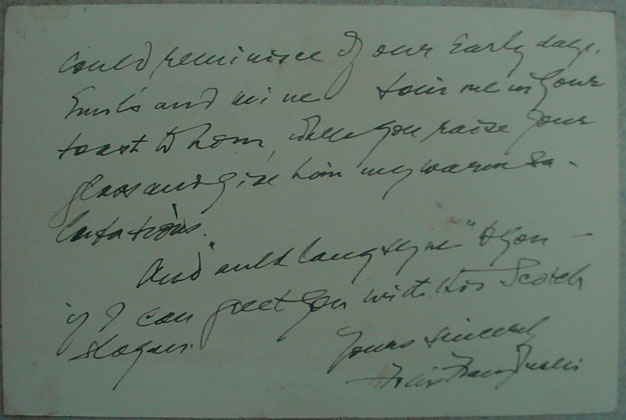 could reminisce of our Early days.
Emil's and mine Join me in your
toast to him, when you raise your
glass and give him my warm sa-
lutations.
And "auld lang syne" to you -
if I can greet you with this Scotch
slogan.
Yours sincerely
Felix